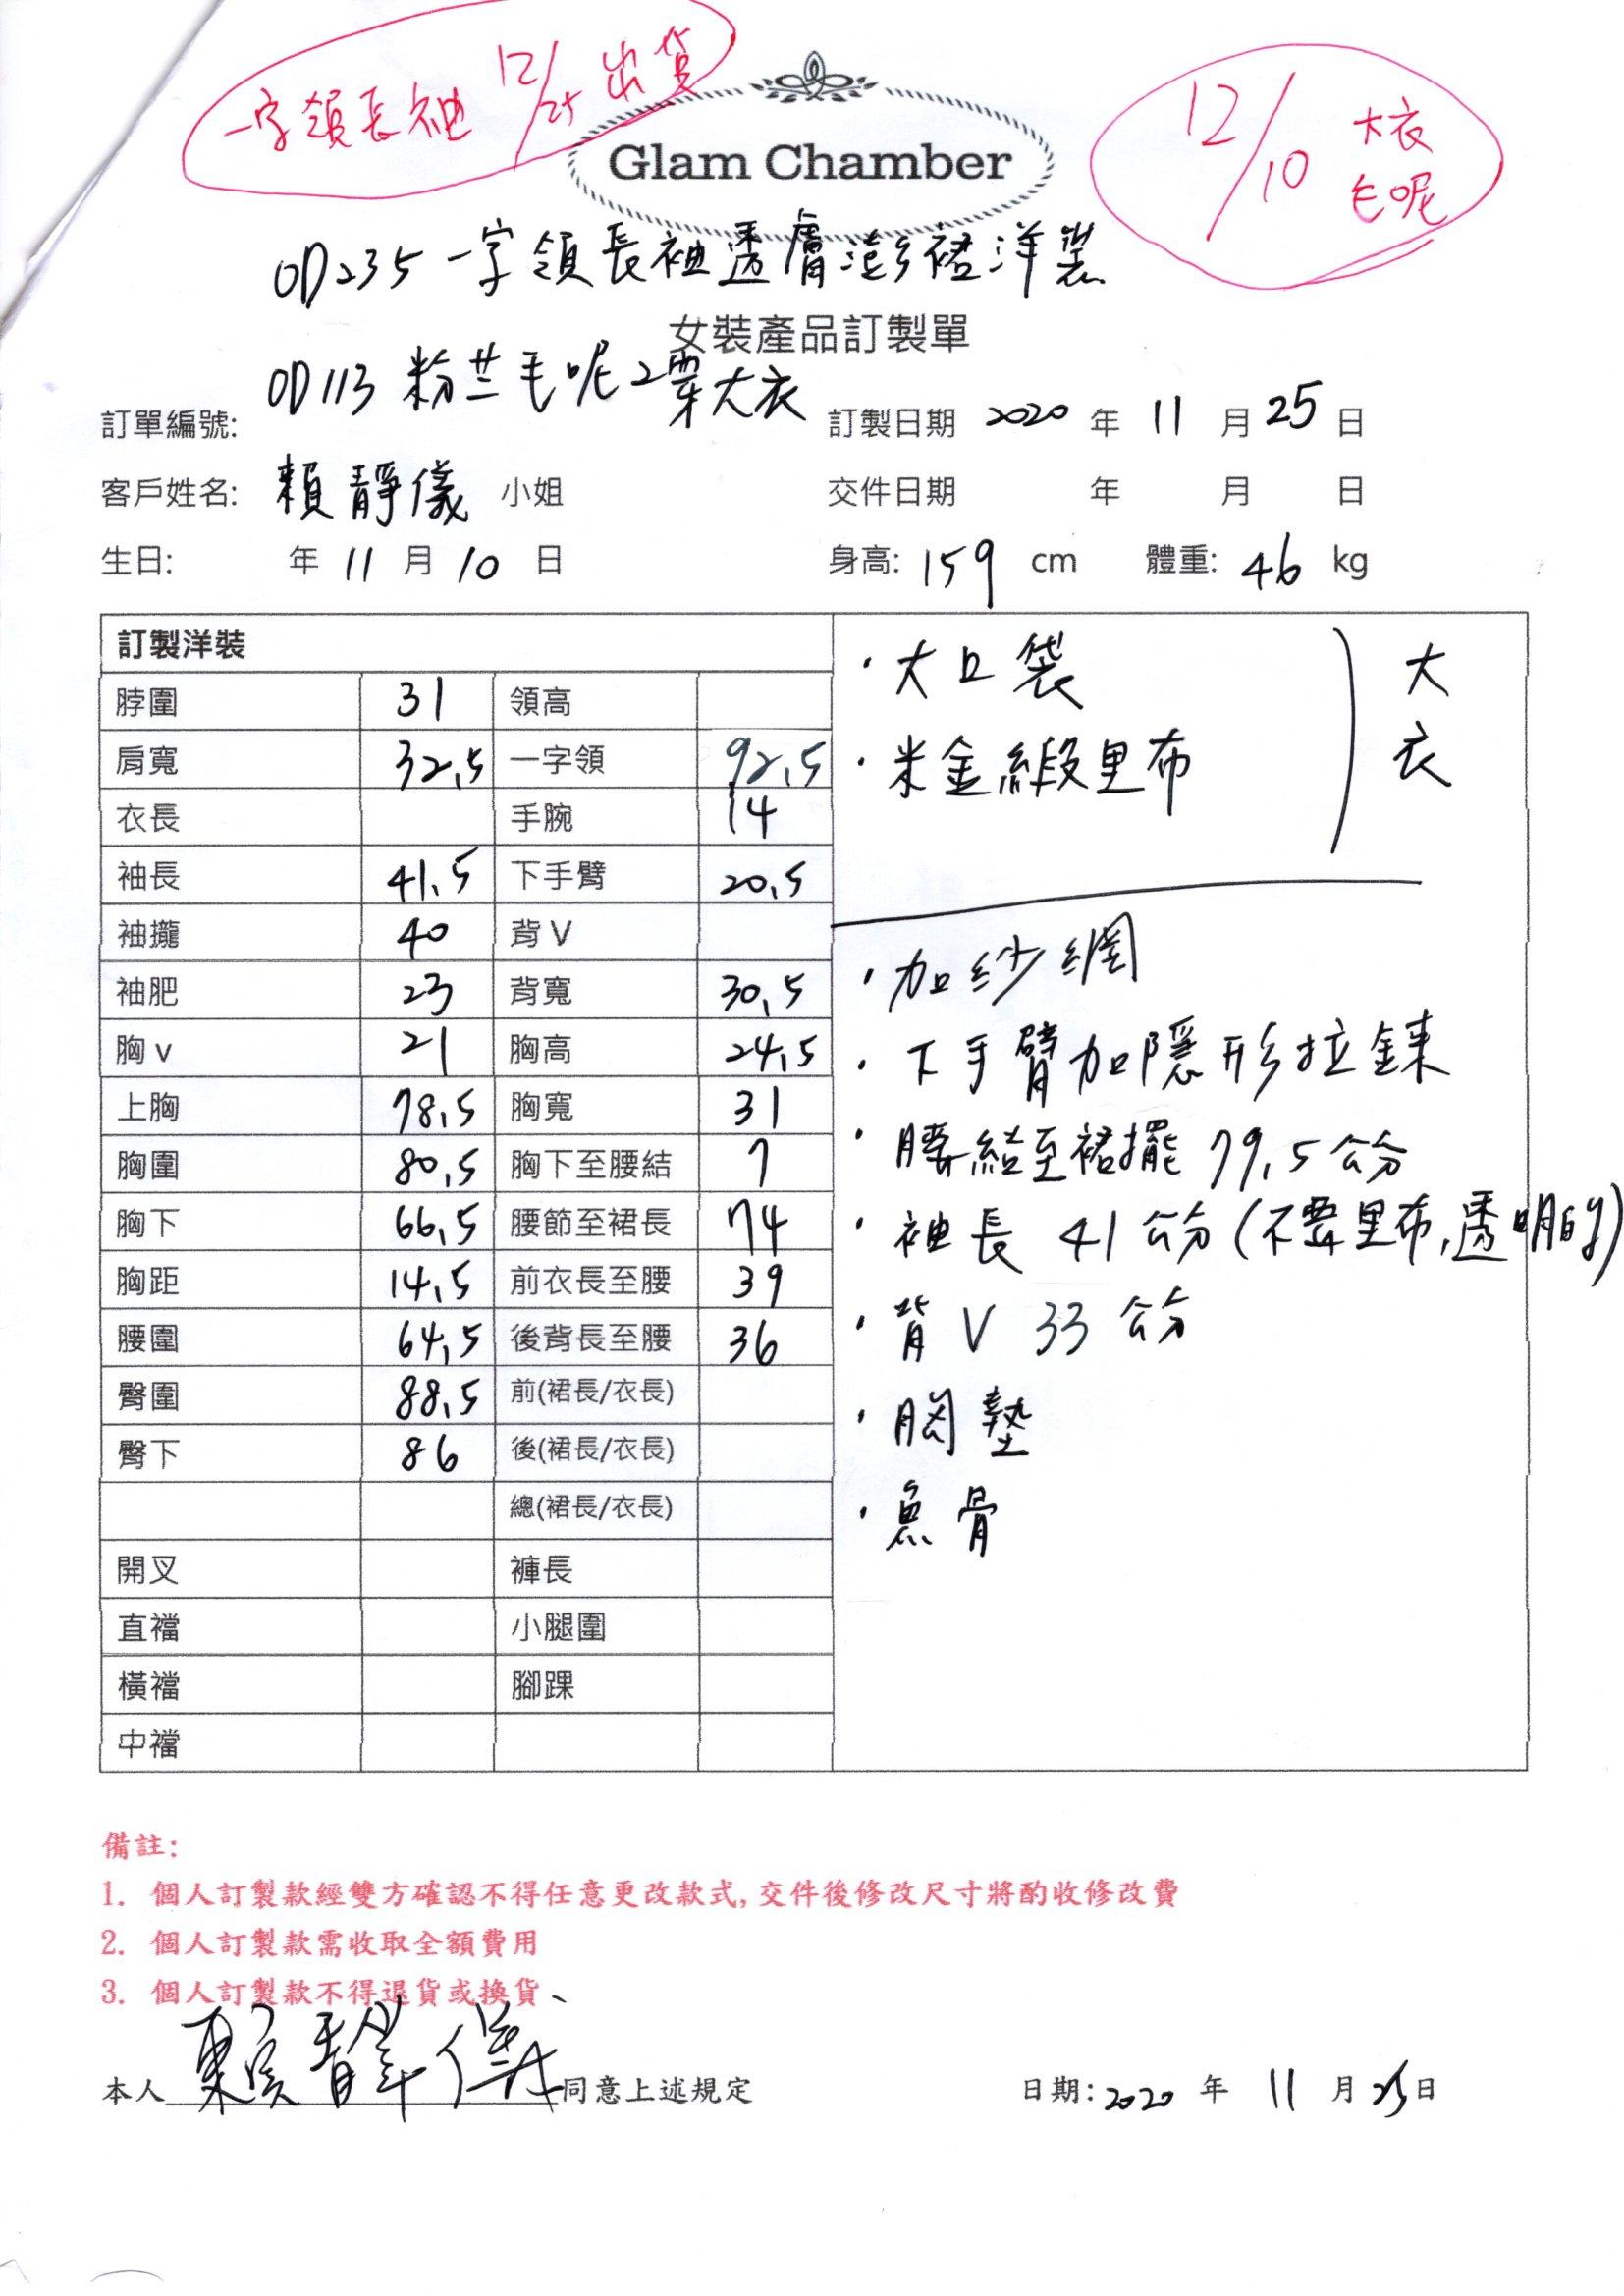 一字領長袖 12/25 出貨
Glam Chamber
12/10 大衣
毛呢
OD235 一字領長袖透膚澎裙洋裝
女裝產品訂製單
OD113 粉芷毛呢2穿大衣
訂單編號: 訂製日期 2020 年 11 月 25 日
客戶姓名: 賴靜儀 小姐 交件日期 年 月 日
生日: 年 11 月 10 日 身高: 159 cm 體重: 46 kg
訂製洋裝
脖圍 31 領高
肩寬 32.5 一字領 92.5
衣長 手腕 14
袖長 41.5 下手臂 20.5
袖攏 40 背 V
袖肥 23 背寬 30.5
胸 v 21 胸高 24.5
上胸 78.5 胸寬 31
胸圍 80.5 胸下至腰結 7
胸下 66.5 腰節至裙長 74
胸距 14.5 前衣長至腰 39
腰圍 64.5 後背長至腰 36
臀圍 88.5 前(裙長/衣長)
臀下 86 後(裙長/衣長)
總(裙長/衣長)
開叉 褲長
直襠 小腿圍
橫襠 腳踝
中襠
·大口袋
·米金緞里布
大衣
·加紗網
·下手臂加隱形拉鍊
·腰結至裙擺 79.5公分
·袖長 41公分(不要里布,透明的)
·背V 33 公分
·胸墊
·魚骨
備註:
1. 個人訂製款經雙方確認不得任意更改款式, 交件後修改尺寸將酌收修改費
2. 個人訂製款需收取全額費用
3. 個人訂製款不得退貨或換貨
本人 賴靜儀 同意上述規定 日期: 2020 年 11 月 25 日